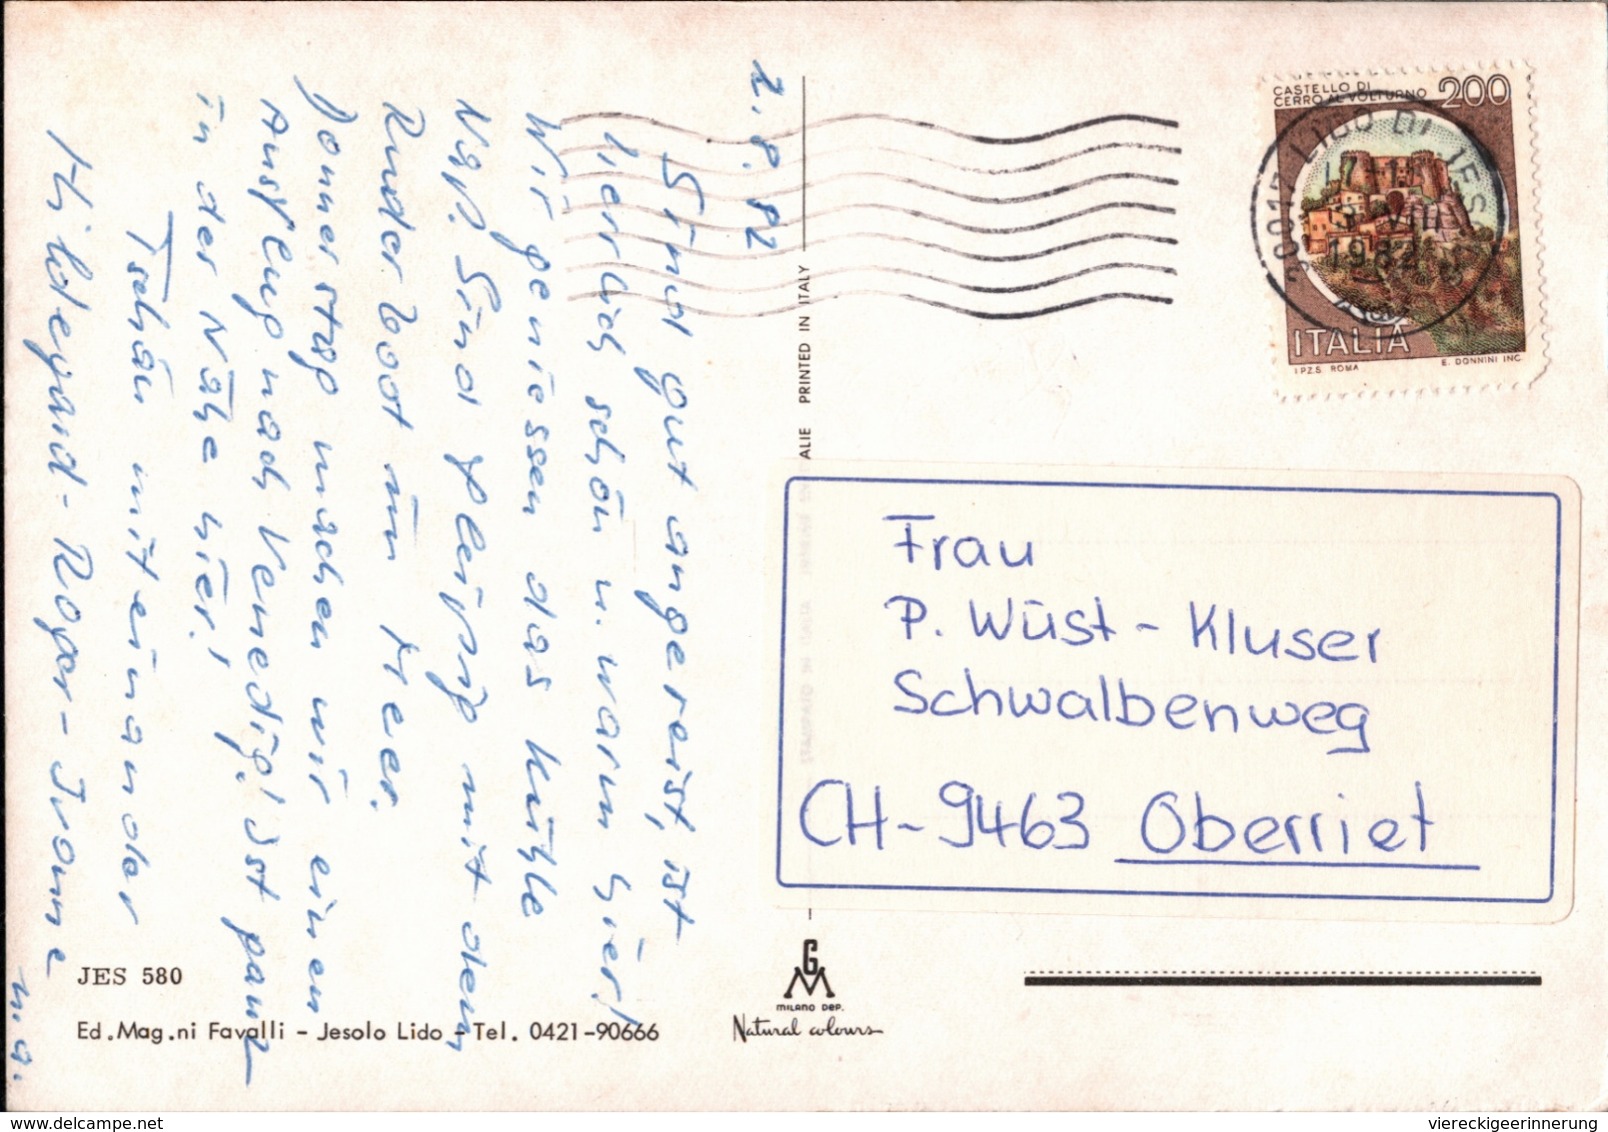 2.8.82
Sind gut angereist, ist
herrlich schön u. warm hier!
Wir geniessen das kühle
Nass. Sind fleissig mit dem
Ruderboot im Meer.
Donnerstag machen wir einen
Ausflug nach Venedig! Ist ganz
in der Nähe hier!
Tschau miteinander
Hildegard - Roger - Ivonne
u. a.
JES 580
Ed.Mag.ni Favalli - Jesolo Lido - Tel. 0421-90666
PRINTED IN ITALY
G M
MILANO DEP.
Natural colours
CASTELLO DI
CERRO AL VOLTURNO 200
ITALIA
I.P.Z.S. ROMA E. DONNINI INC.
LIDO DI JES
VIII
1982
Frau
P. Wüst-Kluser
Schwalbenweg
CH-9463 Oberriet
delcampe.net
viereckigeerinnerung